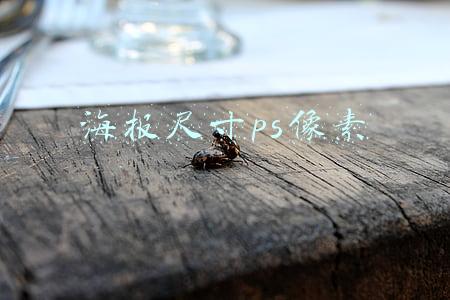 海报尺寸ps像素